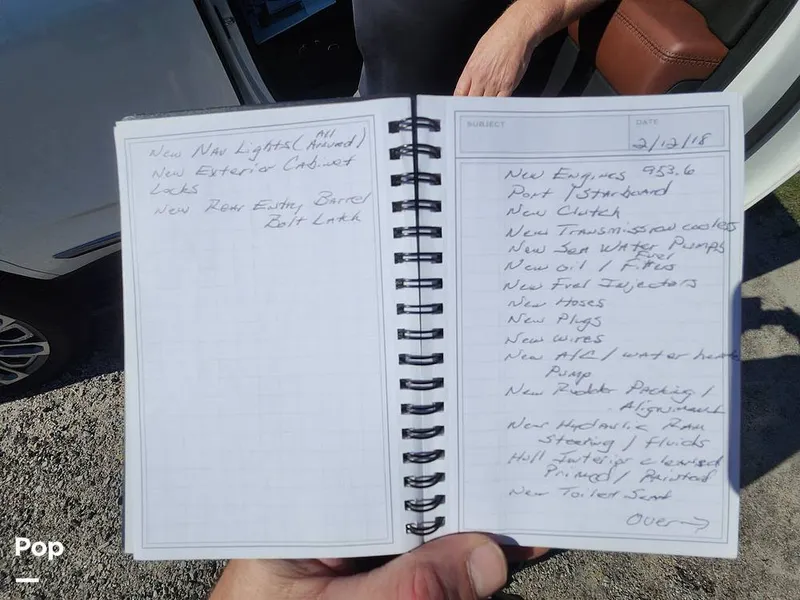 New Nav Lights (All Around)
New Exterior Cabinet
Locks
New Rear Entry Barrel
Bolt Latch
SUBJECT
DATE
2/12/18
New Engines 953.6
Port / Starboard
New Clutch
New Transmission coolers
New Sea Water Pumps
New oil / Fuel Filters
New Fuel Injectors
New Hoses
New Plugs
New wires
New A/C / water heat
Pump
New Rudder Packing /
Alignment
New Hydraulic Ram
Steering / Fluids
Hull Interior cleaned
Primed / Painted
New Toilet Seat
Over →
Pop